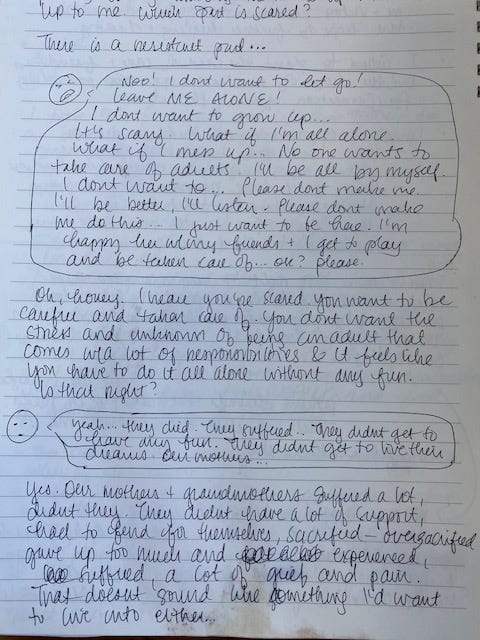 up to me which part is scared?
There is a resistant part...
Noo! I dont want to let go!
Leave ME ALONE!
I dont want to grow up...
It's scary. What if I'm all alone.
What if I mess up... No one wants to
take care of adults. I'll be all by myself.
I dont want to... Please dont make me.
I'll be better, I'll listen. Please dont make
me do this... I just want to be here. I'm
happy here w/ my friends + I get to play
and be taken care of... ok? please.
Oh, honey. I hear you're scared. You want to be
carefree and taken care of. You dont want the
stress and unknown of being an adult that
comes w/ a lot of responsibilities & it feels like
you have to do it all alone without any fun.
Is that right?
yeah... they died. They suffered... They didnt get to
have any fun. They didnt get to live their
dreams. Our mothers...
Yes. Our mothers + grandmothers suffered a lot,
didnt they. They didnt have a lot of support,
had to fend for themselves, sacrificed - oversacrificed
gave up too much and experienced,
suffered, a lot of grief and pain.
That doesnt sound like something I'd want
to live into either...